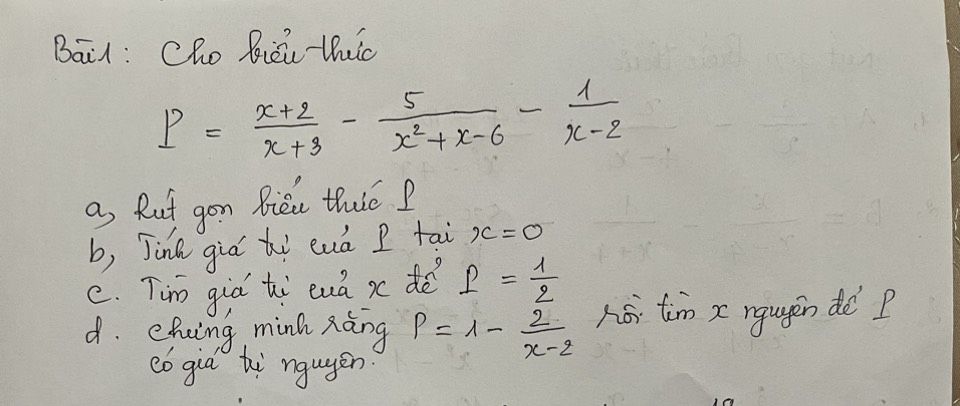 Bài 1: Cho biểu thức
P = \frac{x+2}{x+3} - \frac{5}{x^2+x-6} - \frac{1}{x-2}
a, Rút gọn biểu thức P
b, Tính giá trị của P tại x=0
c. Tìm giá trị của x để P = \frac{1}{2}
d. Chứng minh rằng P = 1 - \frac{2}{x-2} rồi tìm x nguyên để P
có giá trị nguyên.